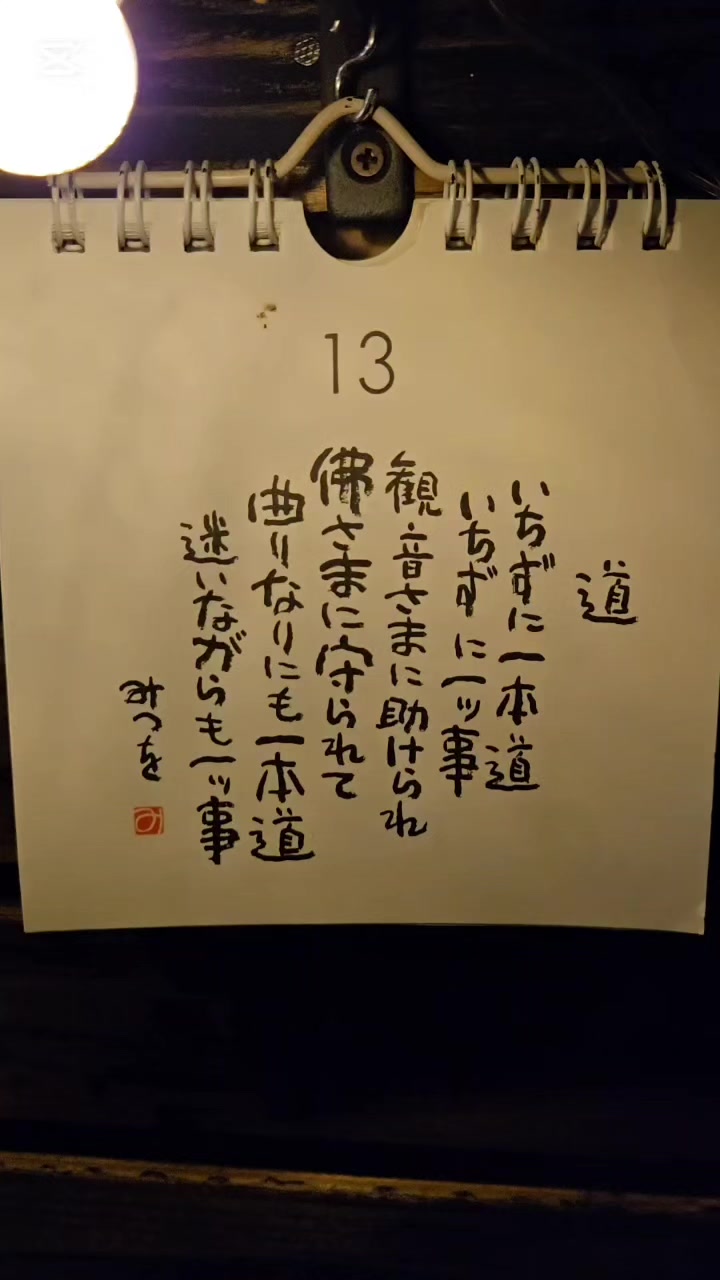 13
道
いちずに一本道
いちずに一ッ事
観音さまに助けられ
佛さまに守られて
曲りなりにも一本道
迷いながらも一ッ事
みつを
み